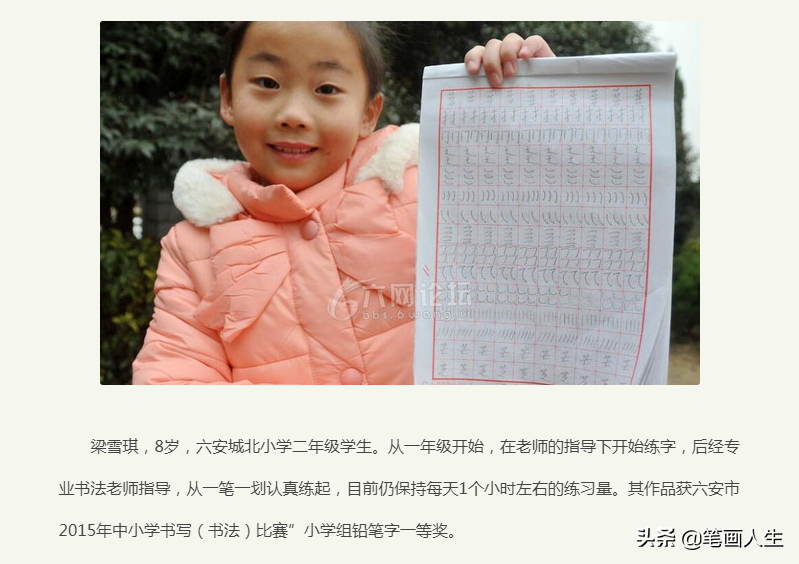 六网论坛
bbs.6wang.cc
梁雪琪，8岁，六安城北小学二年级学生。从一年级开始，在老师的指导下开始练字，后经专
业书法老师指导，从一笔一划认真练起，目前仍保持每天1个小时左右的练习量。其作品获六安市
2015年中小学书写（书法）比赛”小学组铅笔字一等奖。
头条 @笔画人生